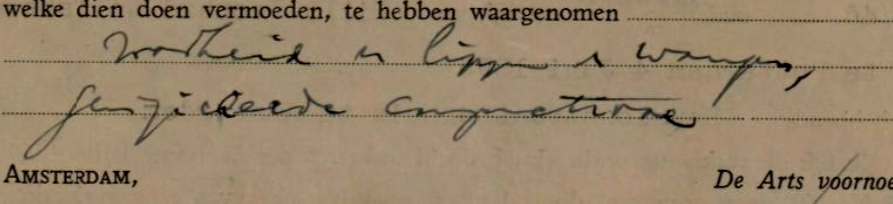 welke dien doen vermoeden, te hebben waargenomen
roodheid lippen wangen,
geinjiceerde conjunctivae
AMSTERDAM, De Arts voornoe